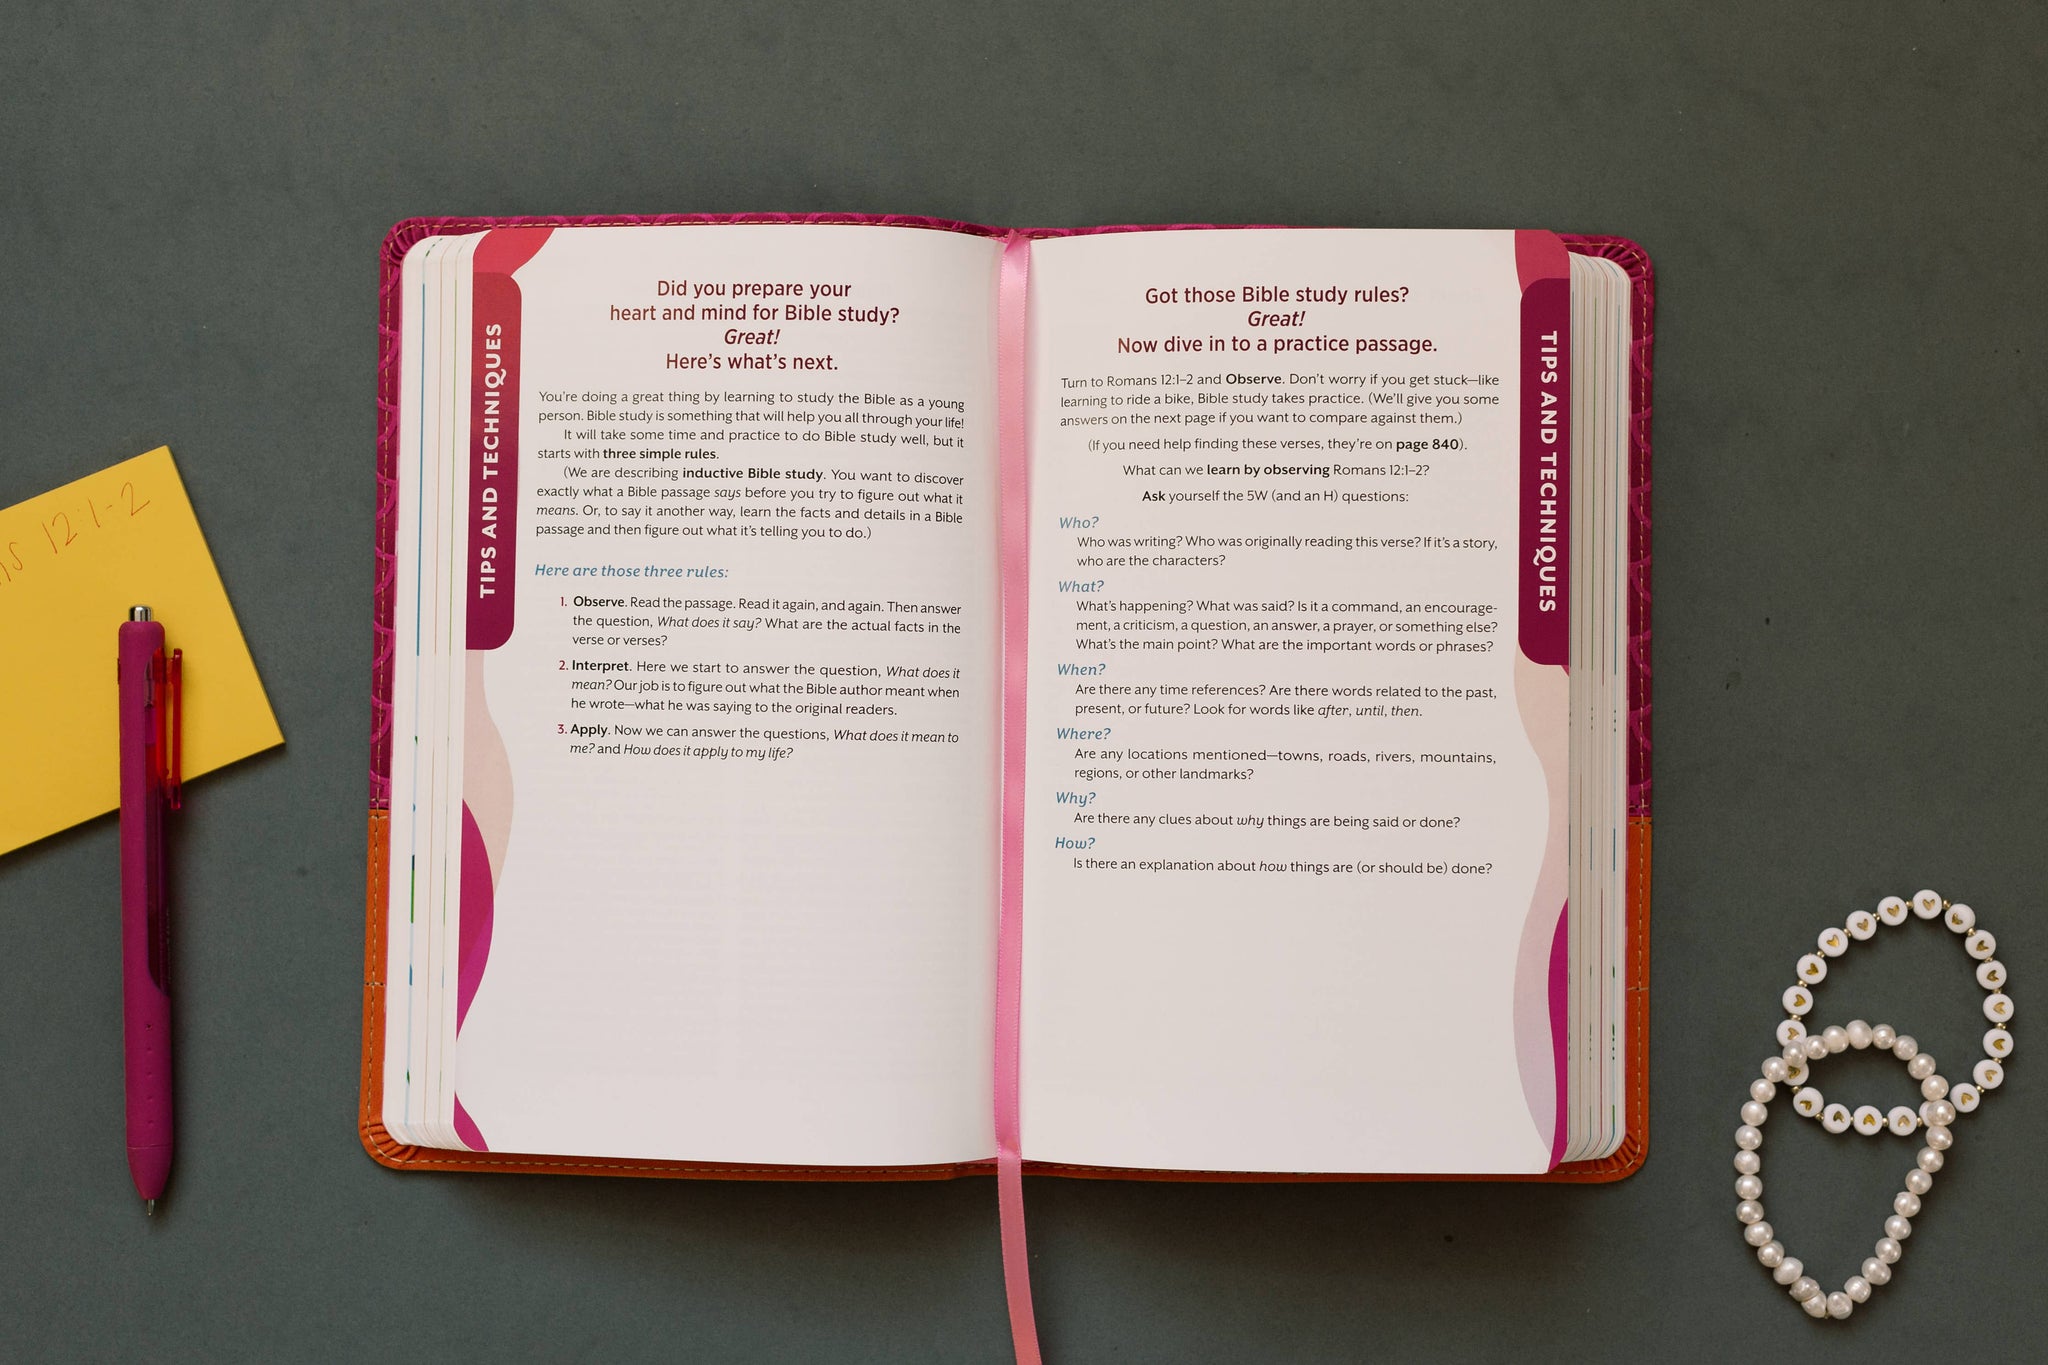 12:1-2
TIPS AND TECHNIQUES
Did you prepare your
heart and mind for Bible study?
Great!
Here's what's next.
You're doing a great thing by learning to study the Bible as a young
person. Bible study is something that will help you all through your life!
It will take some time and practice to do Bible study well, but it
starts with three simple rules.
(We are describing inductive Bible study. You want to discover
exactly what a Bible passage says before you try to figure out what it
means. Or, to say it another way, learn the facts and details in a Bible
passage and then figure out what it's telling you to do.)
Here are those three rules:
1. Observe. Read the passage. Read it again, and again. Then answer
the question, What does it say? What are the actual facts in the
verse or verses?
2. Interpret. Here we start to answer the question, What does it
mean? Our job is to figure out what the Bible author meant when
he wrote—what he was saying to the original readers.
3. Apply. Now we can answer the questions, What does it mean to
me? and How does it apply to my life?
Got those Bible study rules?
Great!
Now dive in to a practice passage.
Turn to Romans 12:1–2 and Observe. Don't worry if you get stuck—like
learning to ride a bike, Bible study takes practice. (We'll give you some
answers on the next page if you want to compare against them.)
(If you need help finding these verses, they're on page 840).
What can we learn by observing Romans 12:1–2?
Ask yourself the 5W (and an H) questions:
Who?
Who was writing? Who was originally reading this verse? If it's a story,
who are the characters?
What?
What's happening? What was said? Is it a command, an encourage-
ment, a criticism, a question, an answer, a prayer, or something else?
What's the main point? What are the important words or phrases?
When?
Are there any time references? Are there words related to the past,
present, or future? Look for words like after, until, then.
Where?
Are any locations mentioned—towns, roads, rivers, mountains,
regions, or other landmarks?
Why?
Are there any clues about why things are being said or done?
How?
Is there an explanation about how things are (or should be) done?
TIPS AND TECHNIQUES